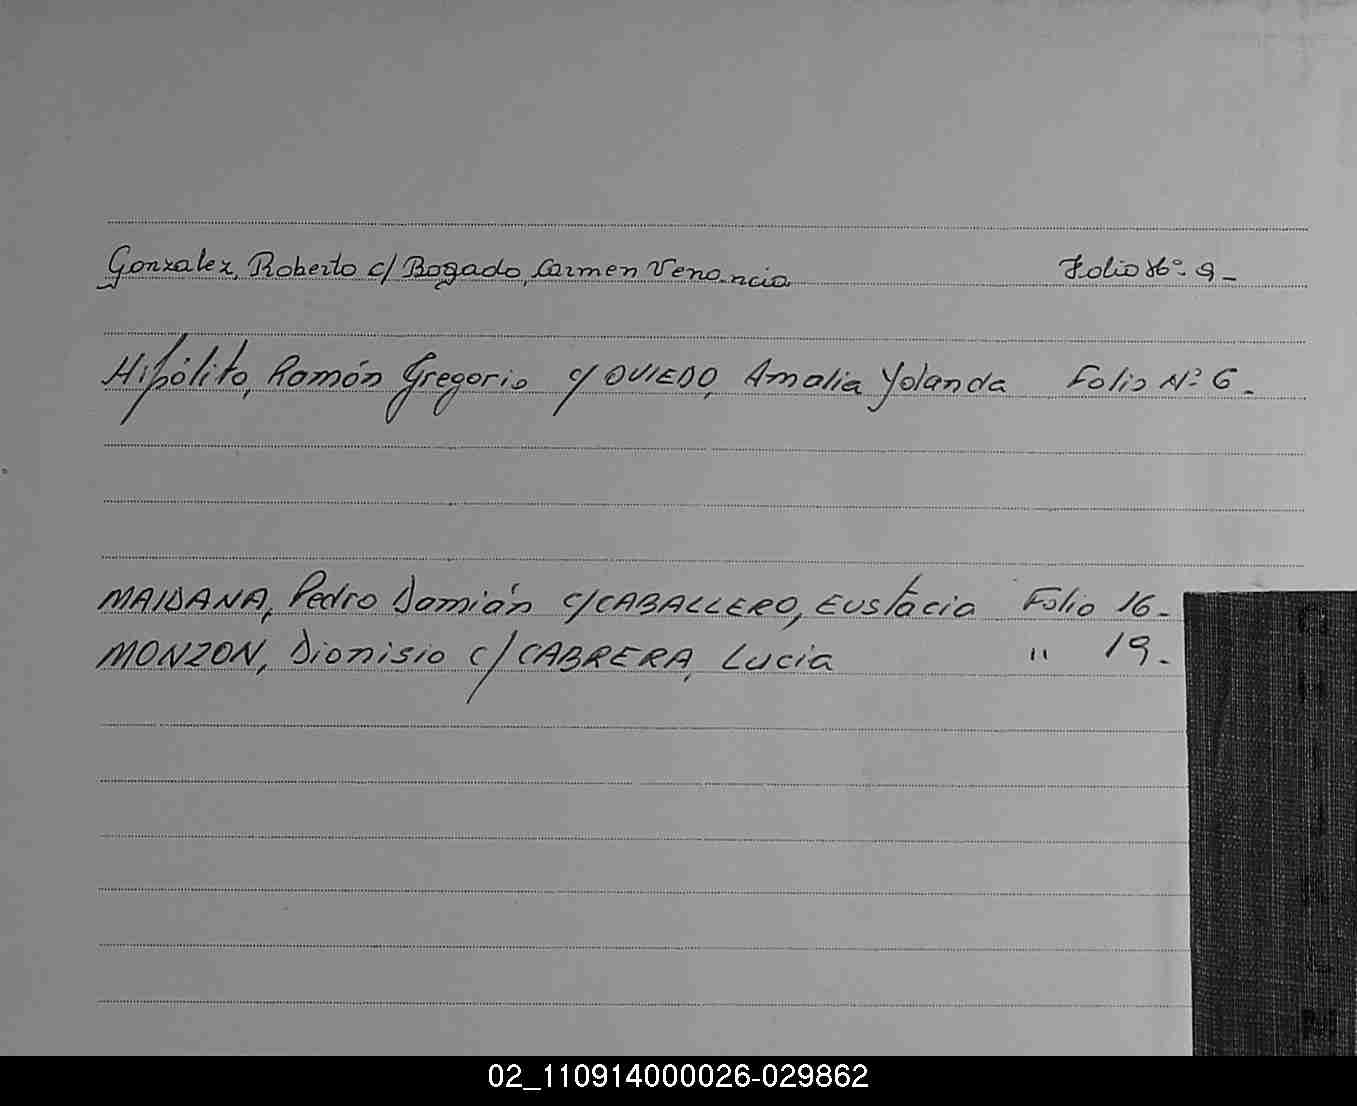 Gonzalez, Roberto c/ Bogado, Carmen Venancia Folio Nº 9-
Hipólito, Ramón Gregorio c/ OVIEDO, Amalia Yolanda Folio Nº 6-
MAIDANA, Pedro Damián c/ CABALLERO, Eustacia Folio 16-
MONZON, Dionisio c/ CABRERA, Lucia " 19-
02_110914000026-029862